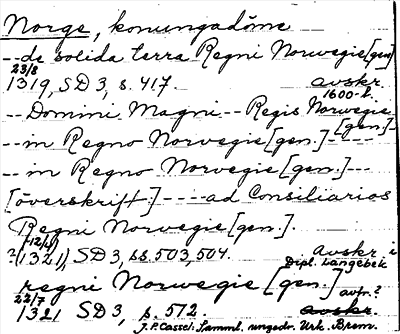 Norge, konungadöme
--de solida terra Regni Norwegie [gen]
23/8
1319, SD 3, s. 417. avskr.
1600-t.
--Domini Magni--Regis Norwegie
[gen.]-
--in Regno Norvegie [gen.]-----
--in Regno Norvegie [gen.]---
[överskrift:]----ad Consiliarios
Regni Norvegie [gen.].
?(12/4)
(1321), SD 3, ss. 503, 504. Avskr i
Dipl. Langebek
regni Norwegie [gen.] avtr.?
22/7
1321 SD 3, s. 512 avskr.
J.P. Cassel: Samml. ungedr. Urk. Brem.